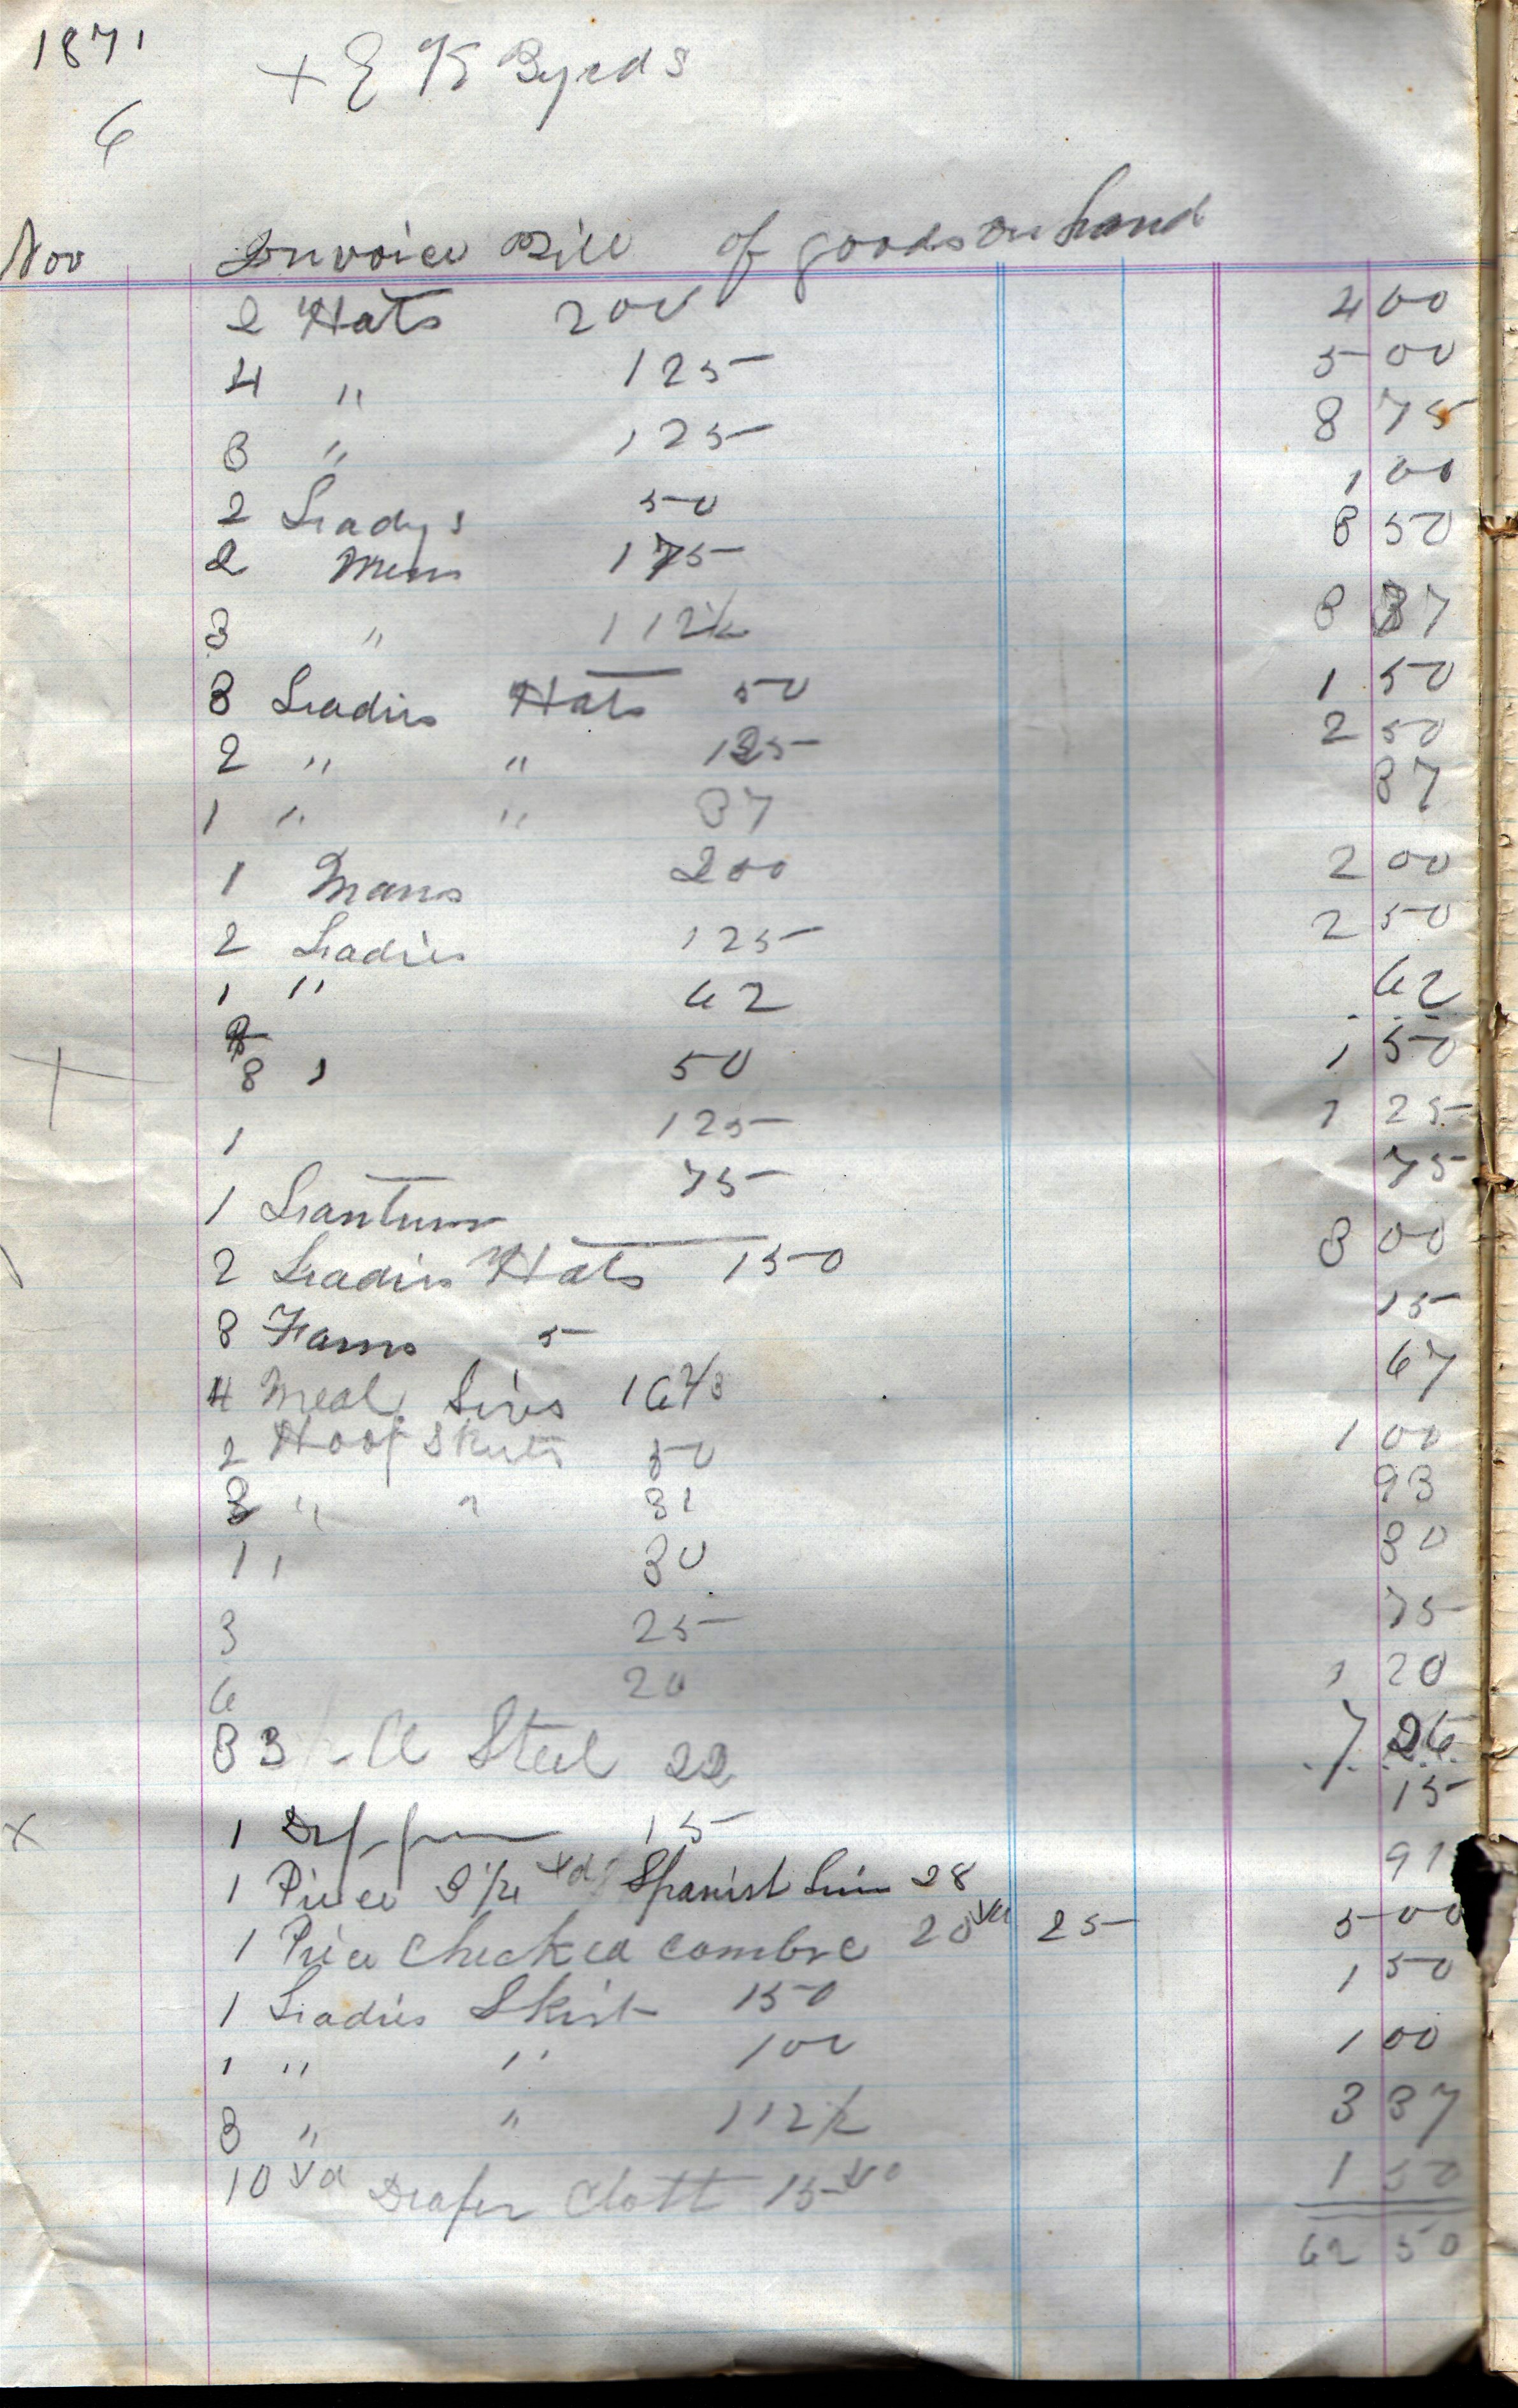 1871
+ E K Byrds
6
Nov Invoice Bill of goods on hand
2 Hats 200 4 00
4 " 125 5 00
3 " 125 3 75
2 Ladys 50 1 00
2 Mens 175 3 50
3 " 112½ 3 37
3 Ladies Hats 50 1 50
2 " " 125 2 50
1 " " 87 87
1 Mans 200 2 00
2 Ladies 125 2 50
1 " 62 62
3 " 50 1 50
1 125 1 25
1 Lantern 75 75
2 Ladies Hats 150 3 00
3 Fans 5 15
4 Meal Sives 16⅔ 67
2 Hoop Skirts 50 1 00
3 " " 31 93
1 " 30 30
3 25 75
6 20 1 20
33 Steel 22 7 26
1 15 15
1 Piece 3¼ yd Spanish Lin 28 91
1 Piece Checked Cambre 20 yd 25 5 00
1 Ladies Skirt 150 1 50
1 " " 100 1 00
3 " " 112½ 3 37
10 yd Draper Cloth 15 1 50
62 50